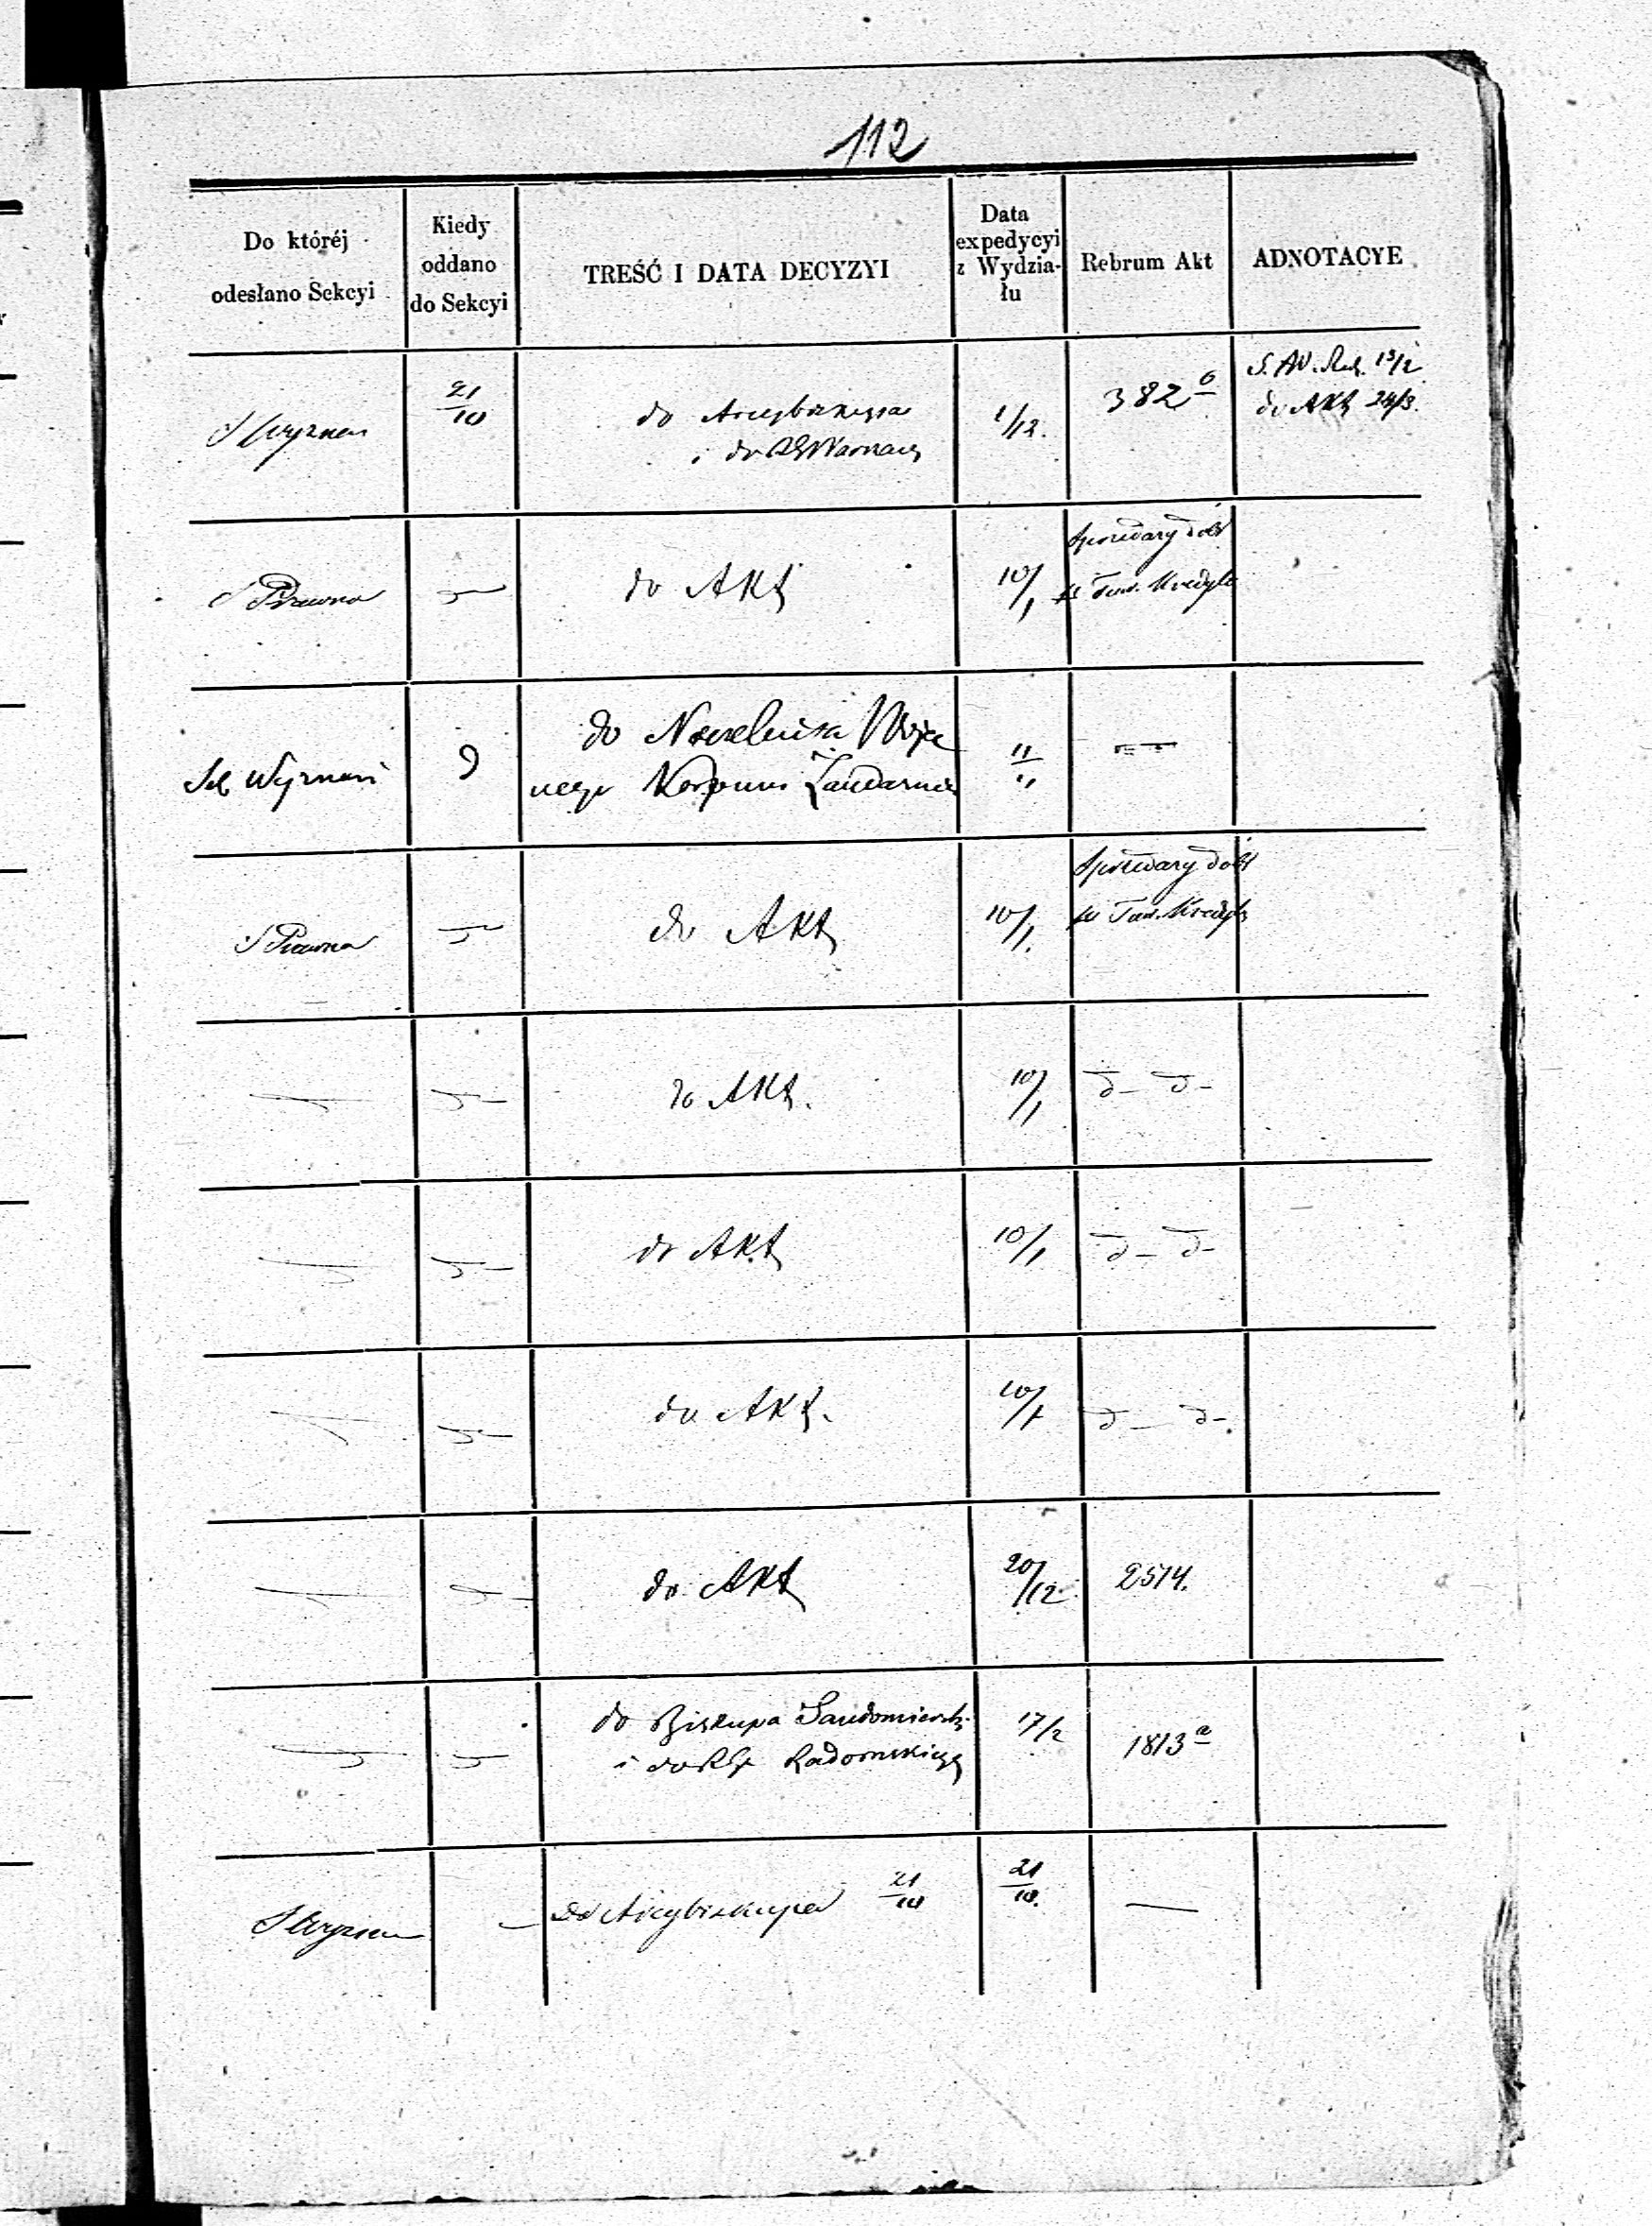 112
Do któréj
odesłano Sekcyi
Kiedy
oddano
do Sekcyi
TREŚĆ I DATA DECYZYI
Data
expedycyi
z Wydzia-
łu
Rebrum Akt
ADNOTACYE
S Wyznań
21/10
do Arcybiskupa
i do
1/12.
382
13/2
do Akt 24/3.
S Prawna
do Akt
10/1
dóbr
Tow. Kredyt
Wyznań
do Naczelnika
nego Korpusu Żandarmów
S Prawna
do Akt
10/1.
dóbr
Tow. Kredyt
do Akt.
10/1
d- d-
do Akt
10/1
d- d-
do Akt.
10/1
d- d-
do Akt
20/12
2514.
do Biskupa Sandomiersk.
i do Radomskiego
17/2
1813 a
S Wyznań
Do Arcybiskupa 21/10
21/10.